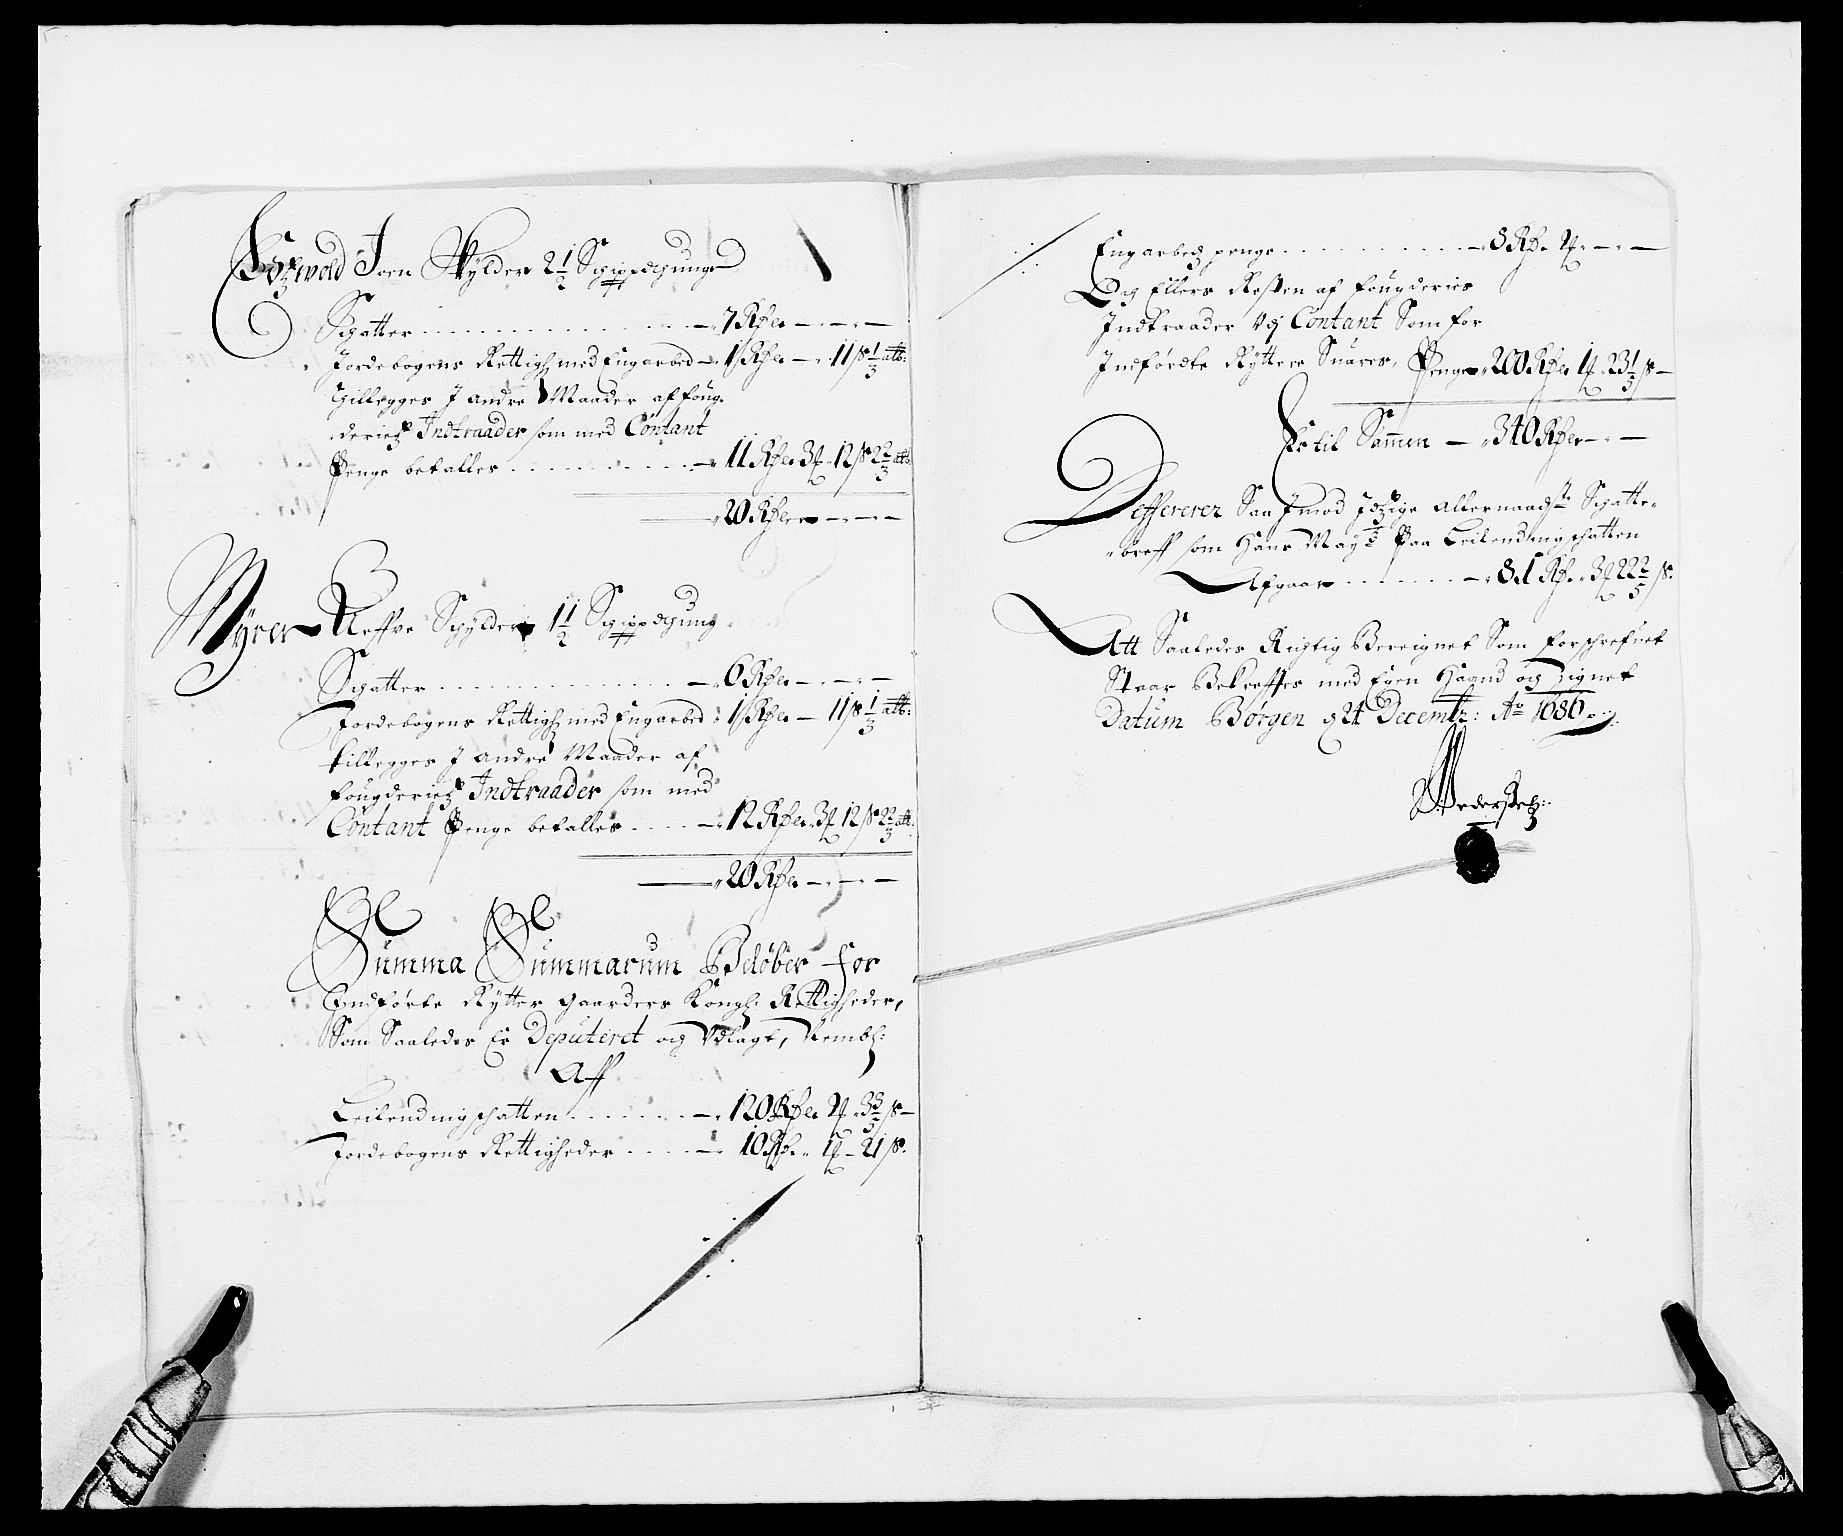 Joen Skylder 2 1/2 Schippdthung
Schatter - 7 Rdr - - -
Jordebogens Rettigh med Engarbed - 1 Rdr - 11 ß 1/3 alb:
Tillegges J andre Maader af foug-
deriets Indtraader som med Contant
Penge betalles - 11 Rdr 3 12 ß 2 2/3 alb
20 Rdr - - -
Myrer Skylder 1 1/2 Schippdthung
Schatter - 6 Rdr - - -
Jordebogens Rettigh med Engarbed - 1 Rdr - 11 ß 1/3 alb:
tillegges J andre Maader af
fougderiets Indtraader som med
Contant Penge betalles - 12 Rdr 3 12 ß 2 2/3 alb:
20 Rdr - - -
Summa Summarum Beløber for
Indførte Rytter gaarders Kongl: Rettigheder,
Som Saaledes er Deputeret og Udlagt, Nembl:
Aff
Leilendingschatten - 120 Rdr 2 3 3/5 ß -
Jordebogens Rettigheder - 10 Rdr 1 - 21 ß.
Engarbedz penge - 8 Rdr 2 - -
Og Ellers Resten af fougderies
Indtraader Udj Contant Som for
Indførdte Ryttere Suares, Penge 200 Rdr 1 23 1/3 ß -
Er til Sammen - 340 Rdr - -
Deffererer Saa Jmod Jdzige allernaadgste Schatte-
breff som Hans Mayts Paa Leilendingschatten
Afgaar - 81 Rdr 3 22 2/5 ß.
Att Saaledes Rigtig Bereignet Som forschrefuet
Staar Bekreffter med Egen Haand og Zignet
Datum Børgen 24 Decembr: Ao 1686